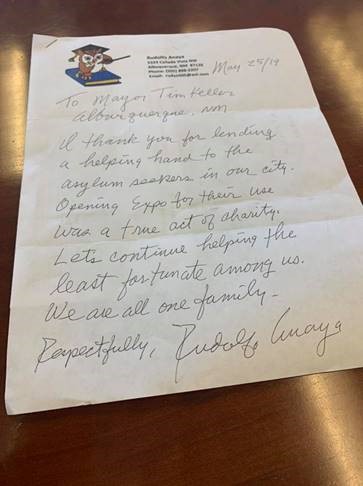 Rudolfo Anaya
Albuquerque, NM 87120
May 25/19
To Mayor Tim Keller
Albuquerque, NM
I thank you for lending
a helping hand to the
asylum seekers in our city.
Opening Expo for their use
was a true act of charity.
Lets continue helping the
least fortunate among us.
We are all one family-
Respectfully, Rudolfo Anaya